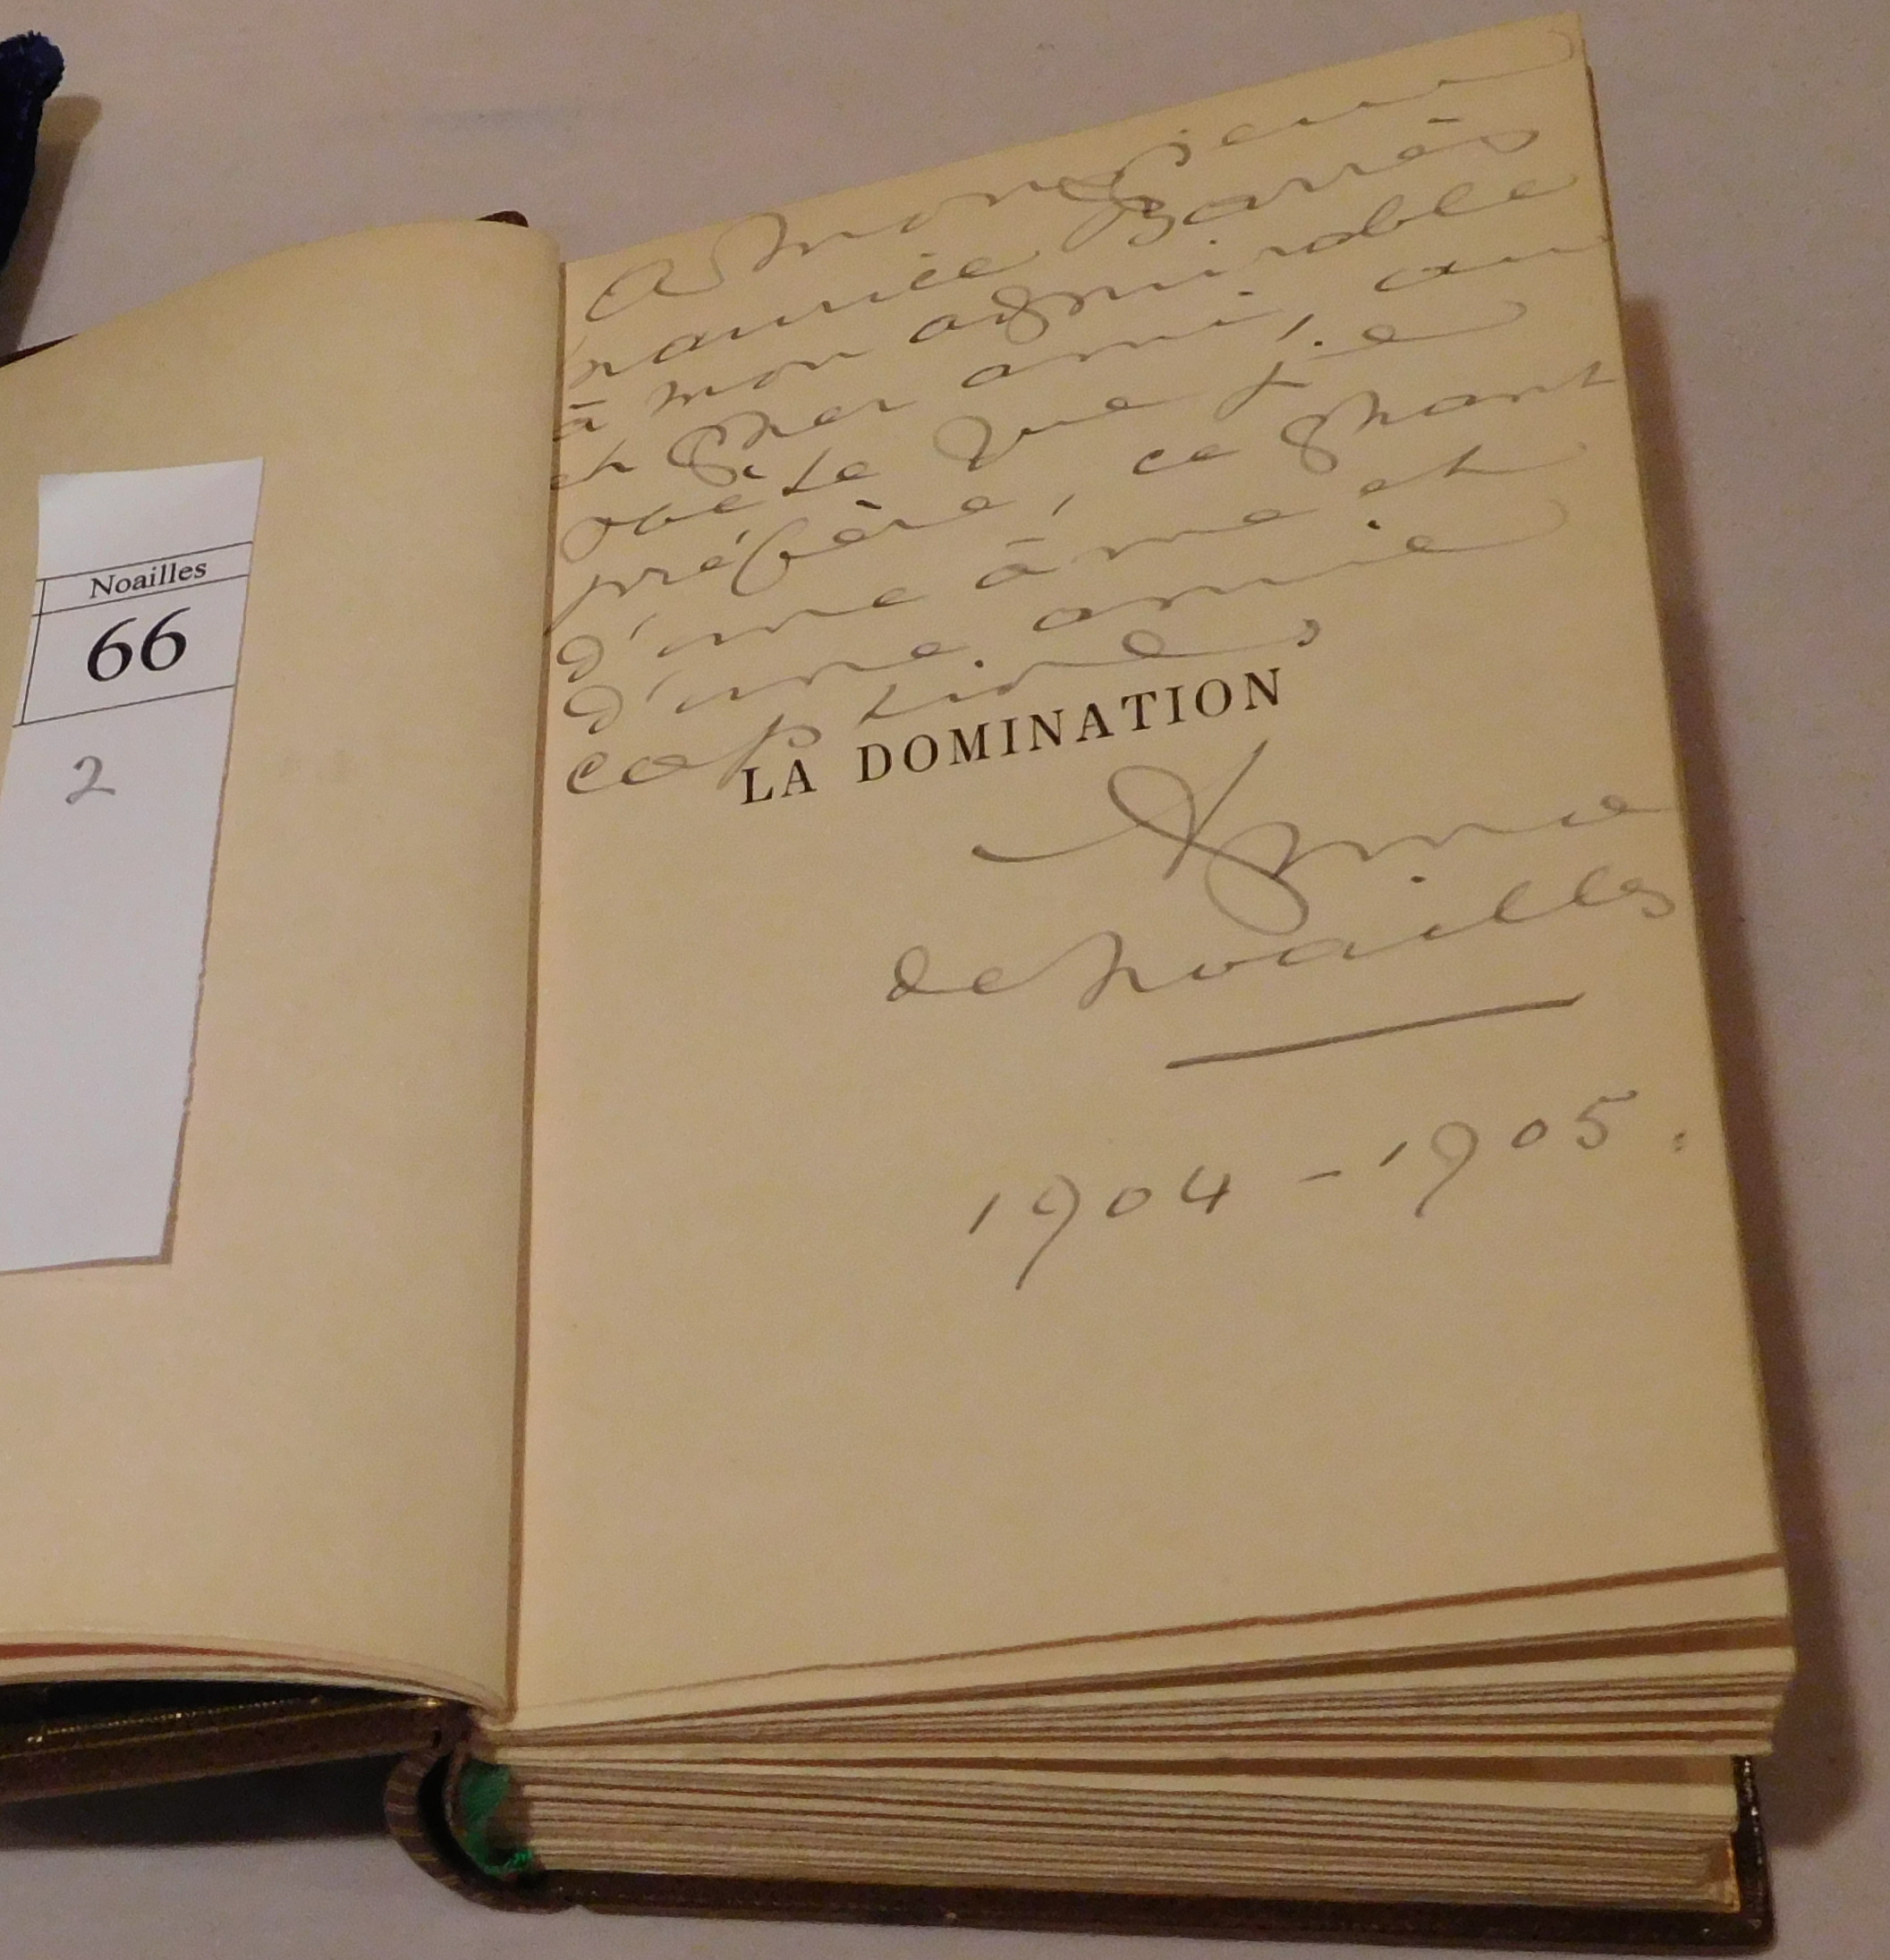 Noailles
66
2
à monsieur
maurice Barrès
à mon admirable
et cher ami, au
poète que je
préfère, ce chant
d'une âme et
d'une amie
captives
LA DOMINATION
Anna
de Noailles
1904 - 1905.